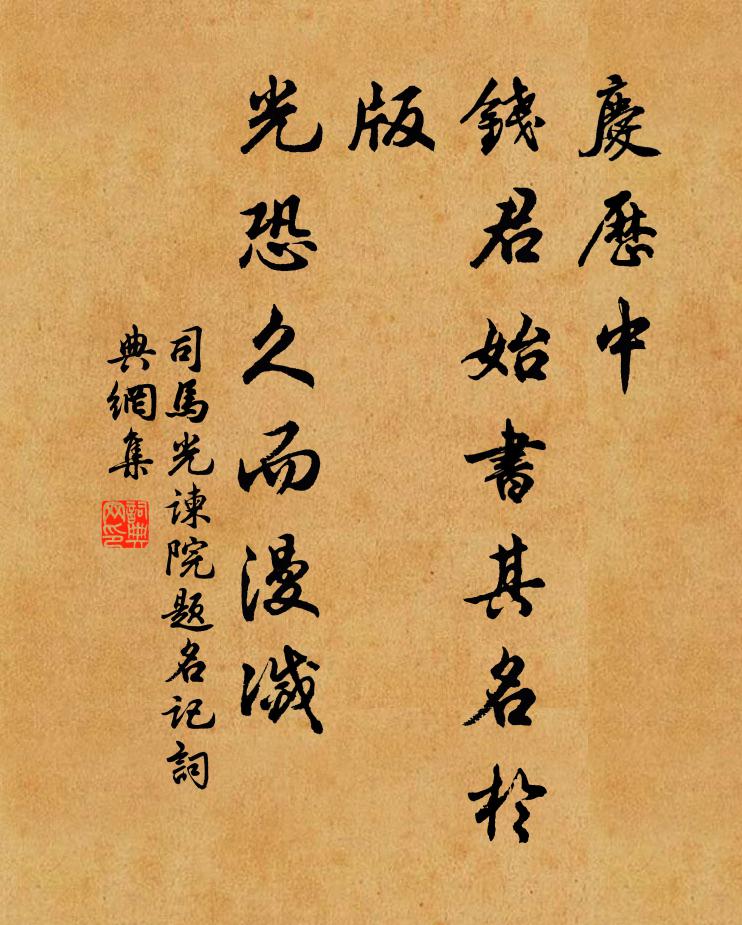 慶歷中
錢君始書其名於
版
光恐久而漫滅
司馬光諫院題名記詞
典網集
詞典
网印